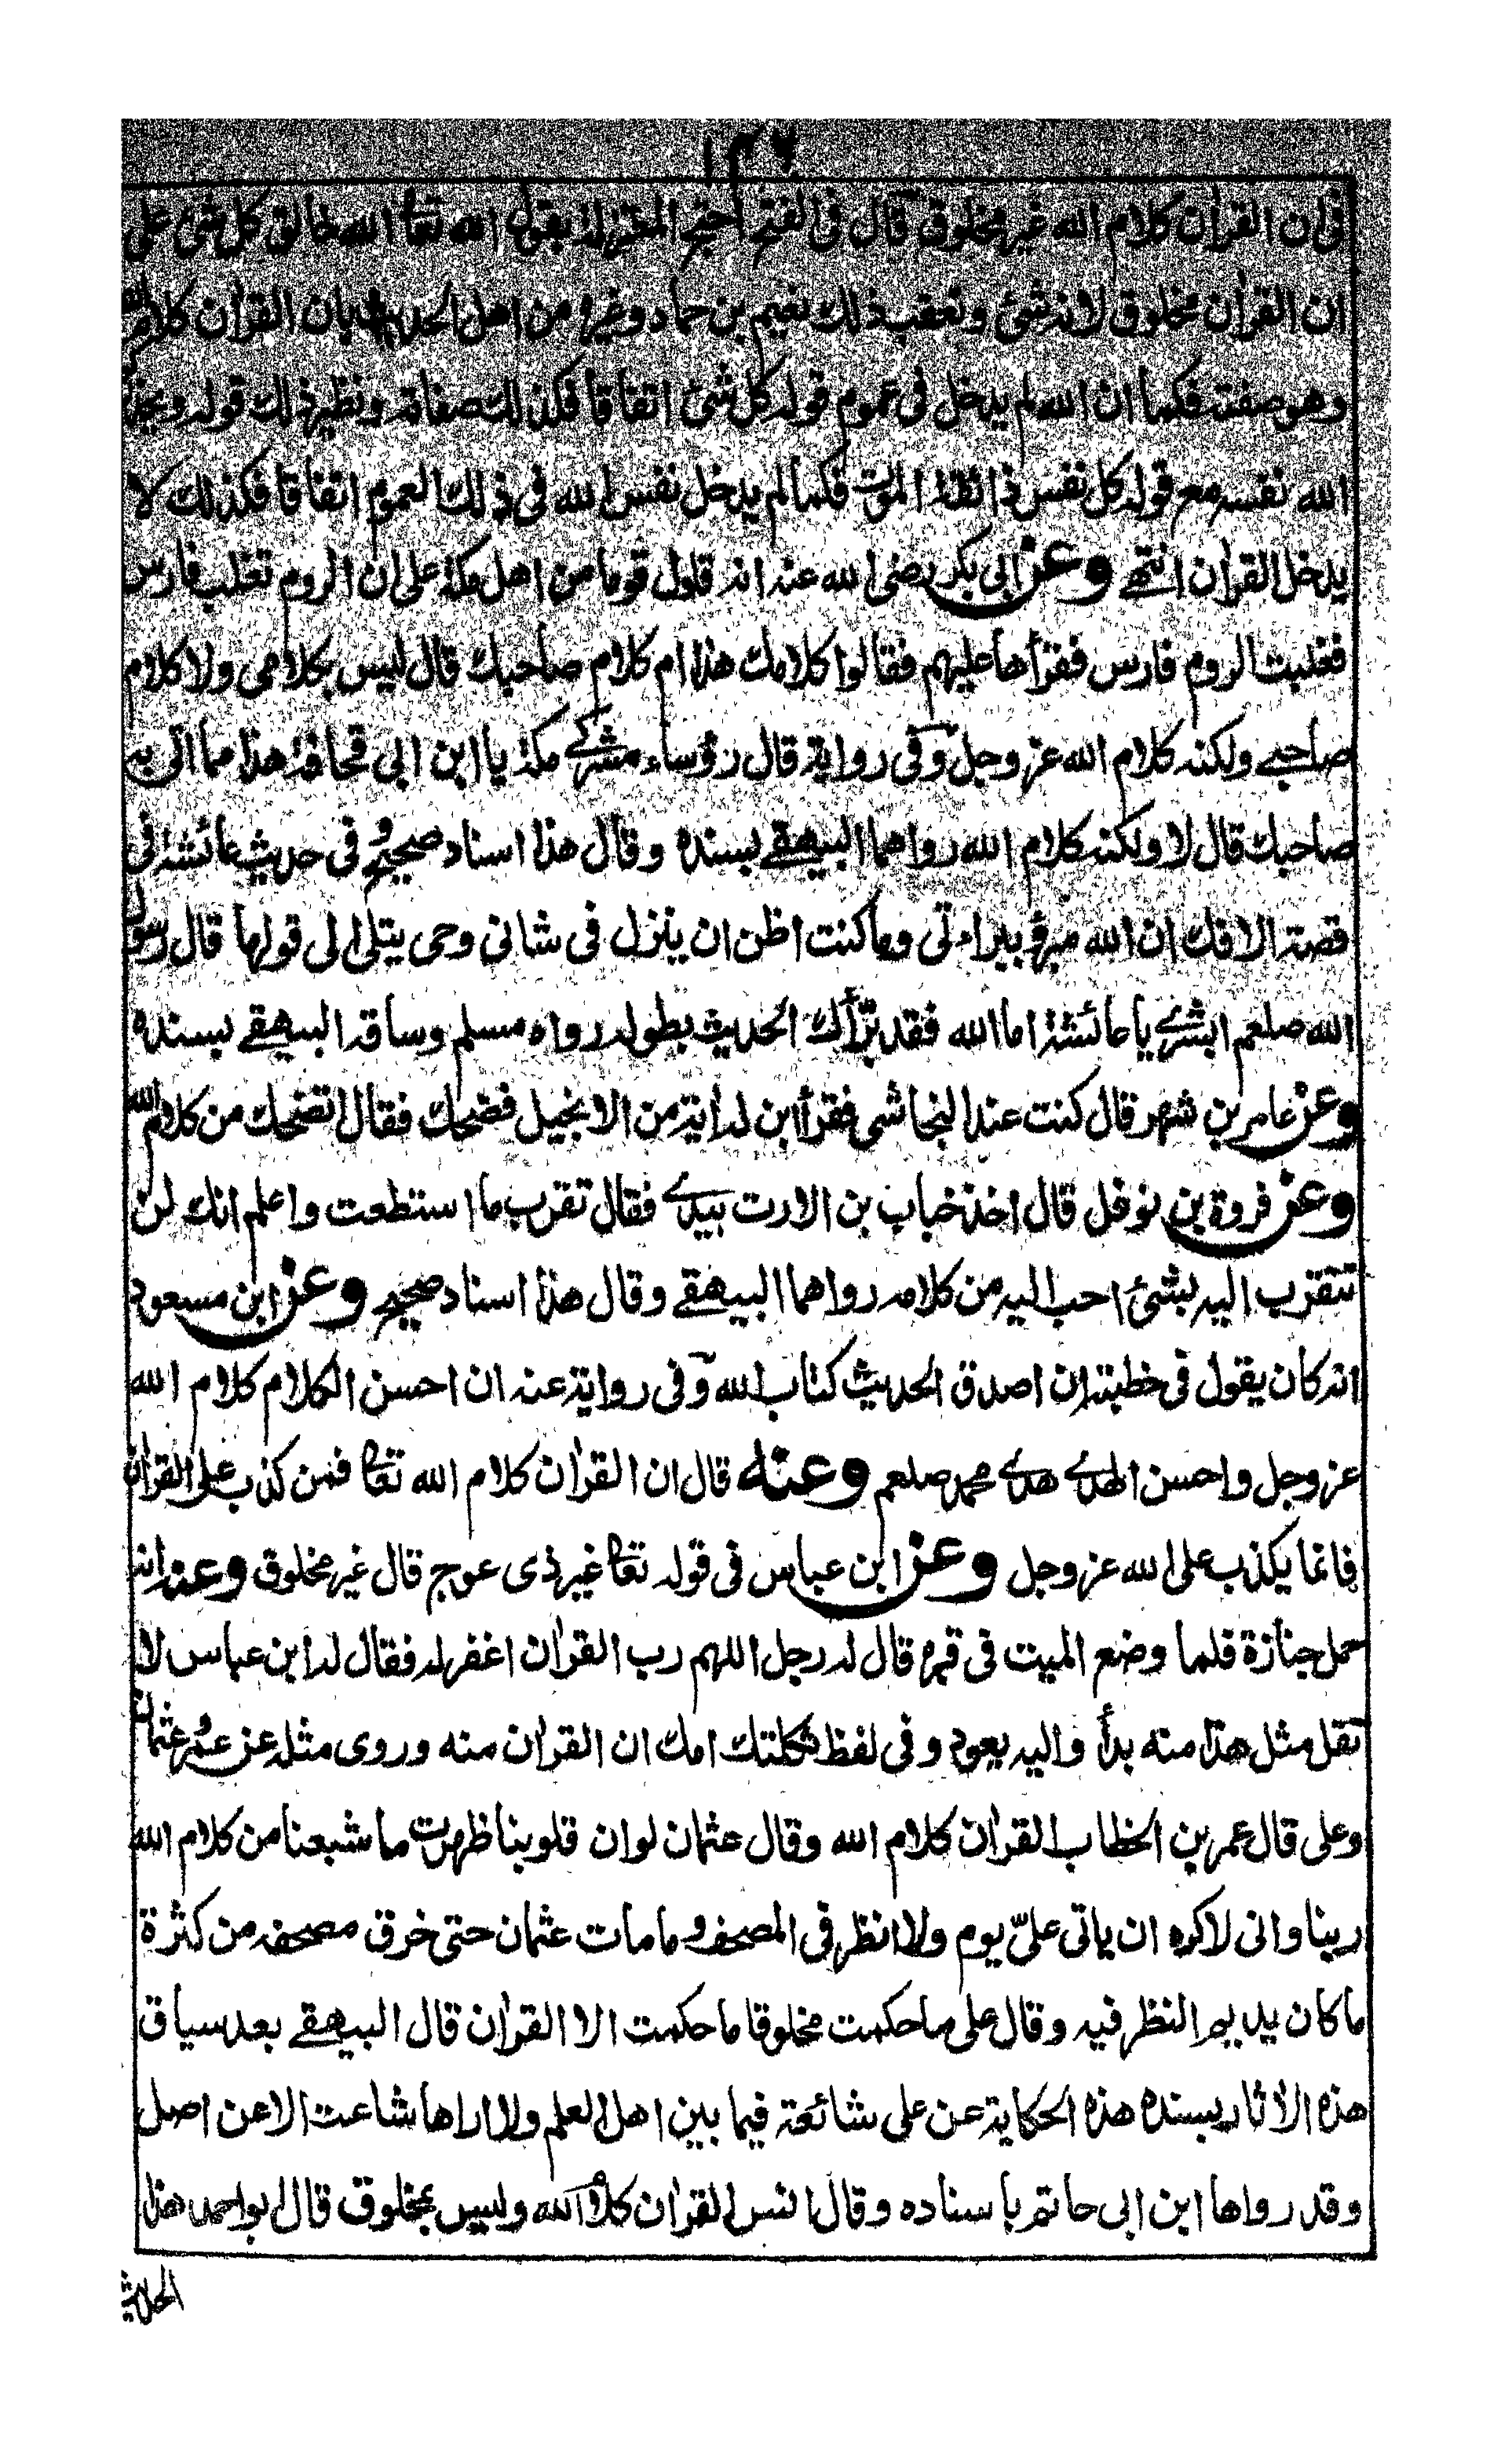 ١٣٦
فى ان القراٰن كلام الله غير مخلوق قال فى الفتح احتج المعتزلة بقول الله تعا الله خالق كل شئ على
ان القراٰن مخلوق لانه شئ وتعقب ذلك نعيم بن حماد وغيره من اهل الحديث بان القراٰن كلام الله
وهو صفته فكما ان الله لم يدخل فى عموم قوله كل شئ اتفاقا فكذلك صفاته ونظير ذلك قوله ويحذركم
الله نفسه مع قوله كل نفس ذائقة الموت فكما لم يدخل نفس الله فى ذلك العموم اتفاقا فكذلك لا
يدخل القراٰن انتهے وعن ابى بكر رضى الله عنه انه قاول قوما من اهل مكة على ان الروم تغلب فارس
فغلبت الروم فارس فقرأها عليهم فقالوا كلامك هذا ام كلام صاحبك قال ليس بكلامى ولا كلام
صاحبے ولكنه كلام الله عز وجل وفى رواية قال رؤساء مشركے مكة يا ابن ابى قحافة هذا مما اتى به
صاحبك قال لا ولكنه كلام الله رواهما البيهقے بسنده وقال هذا اسناد صحيح وفى حديث عائشة فى
قصة الافك ان الله مبرئ ببراءتى وما كنت اظن ان ينزل فى شانى وحى يتلى الى قولها قال رسول
الله صلعم ابشرے يا عائشة اما الله فقد برّأك الحديث بطوله رواه مسلم وساقه البيهقے بسنده
وعن عامر بن شهر قال كنت عند النجاشى فقرأ ابن له اٰية من الانجيل فضحك فقال اتضحك من كلام الله
وعن فروة بن نوفل قال اخذ خباب بن الارت بيدے فقال تقرب ما استطعت واعلم انك لن
تتقرب اليه بشئ احب اليه من كلامه رواهما البيهقے وقال هذا اسناد صحيح وعن ابن مسعود
انه كان يقول فى خطبته ان اصدق الحديث كتاب الله وفى رواية عنه ان احسن الكلام كلام الله
عز وجل واحسن الهدے هدے محمد صلعم وعنه قال ان القراٰن كلام الله تعا فمن كذب على القراٰن
فانما يكذب على الله عز وجل وعن ابن عباس فى قوله تعا غير ذى عوج قال غير مخلوق وعنه انه
حمل جنازة فلما وضع الميت فى قبره قال له رجل اللهم رب القراٰن اغفر له فقال له ابن عباس لا
تقل مثل هذا منه بدأ واليه يعود وفى لفظ ثكلتك امك ان القراٰن منه وروى مثله عن عمر وعثمان
وعلى قال عمر بن الخطاب القراٰن كلام الله وقال عثمان لو ان قلوبنا ظهرت ما شبعنا من كلام الله
ربنا وانى لاكره ان ياتى علىّ يوم ولا انظر فى المصحف وما مات عثمان حتى خرق مصحفه من كثرة
ما كان يديم النظر فيه وقال على ما حكمت مخلوقا ما حكمت الا القراٰن قال البيهقے بعد سياق
هذه الاثار بسنده هذه الحكاية عن على شائعة فيما بين اهل العلم ولا اراها شاعت الا عن اصل
وقد رواها ابن ابى حاتم باسناده وقال انس القراٰن كلام الله وليس بمخلوق قال ابو احمد هذا
الحديث